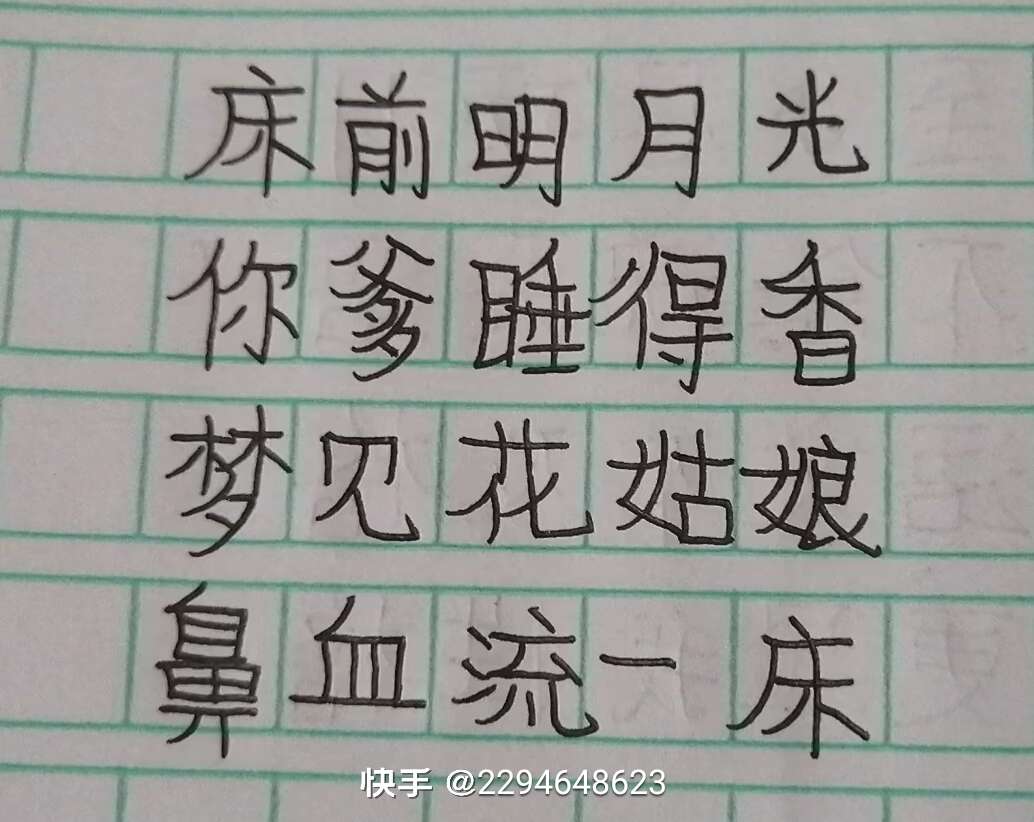 床前明月光
你爹睡得香
梦见花姑娘
鼻血流一床
快手 @2294648623